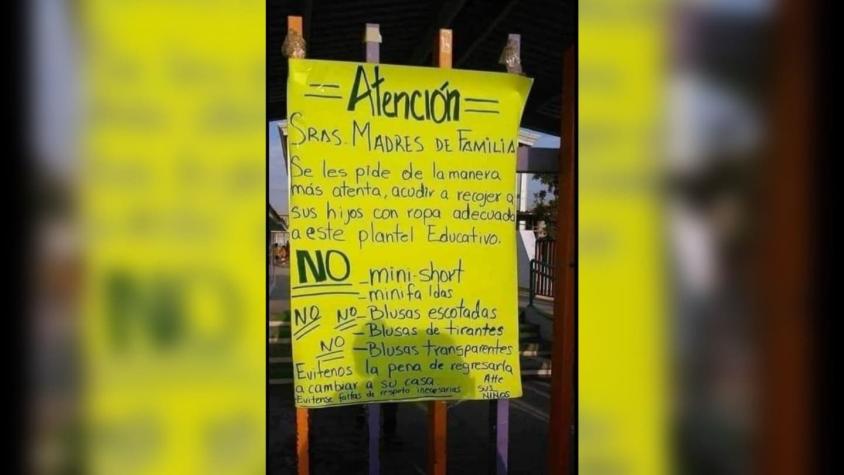 Atención
SRAS. MADRES DE FAMILIA
Se les pide de la manera
más atenta, acudir a recojer a
sus hijos con ropa adecuada
a este plantel Educativo.
NO _mini-short
_minifaldas
NO NO _Blusas escotadas
_Blusas de tirantes
NO _Blusas transparentes
Evitenos la pena de regresarla
a cambiar a su casa.
Evitense faltas de respeto inecesarias
Atte
SUS
NIÑOS